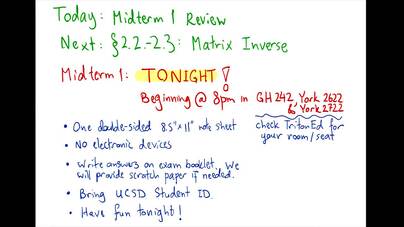 Today: Midterm 1 Review
Next: §2.2-2.3: Matrix Inverse
Midterm 1: TONIGHT!
Beginning @ 8pm in GH 242, York 2622
& York 2722
check TritonEd for
your room/seat
• One double-sided 8.5"x11" note sheet
• No electronic devices
• Write answers on exam booklet. We
will provide scratch paper if needed.
• Bring UCSD Student ID
• Have fun tonight!